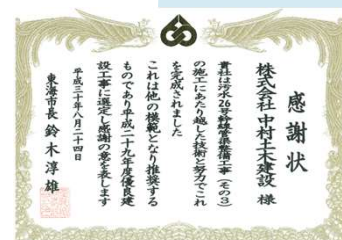 感謝状
株式会社 中村土木建設 様
貴社は汚水26号幹線管渠整備工事(その3)
の施工にあたり越した技術と努力でこれ
を完成されました
これは他の模範となり推奨する
ものであり平成二十九年度優良建
設工事に選定し感謝の意を表します
平成三十年八月二十四日
東海市長 鈴木淳雄